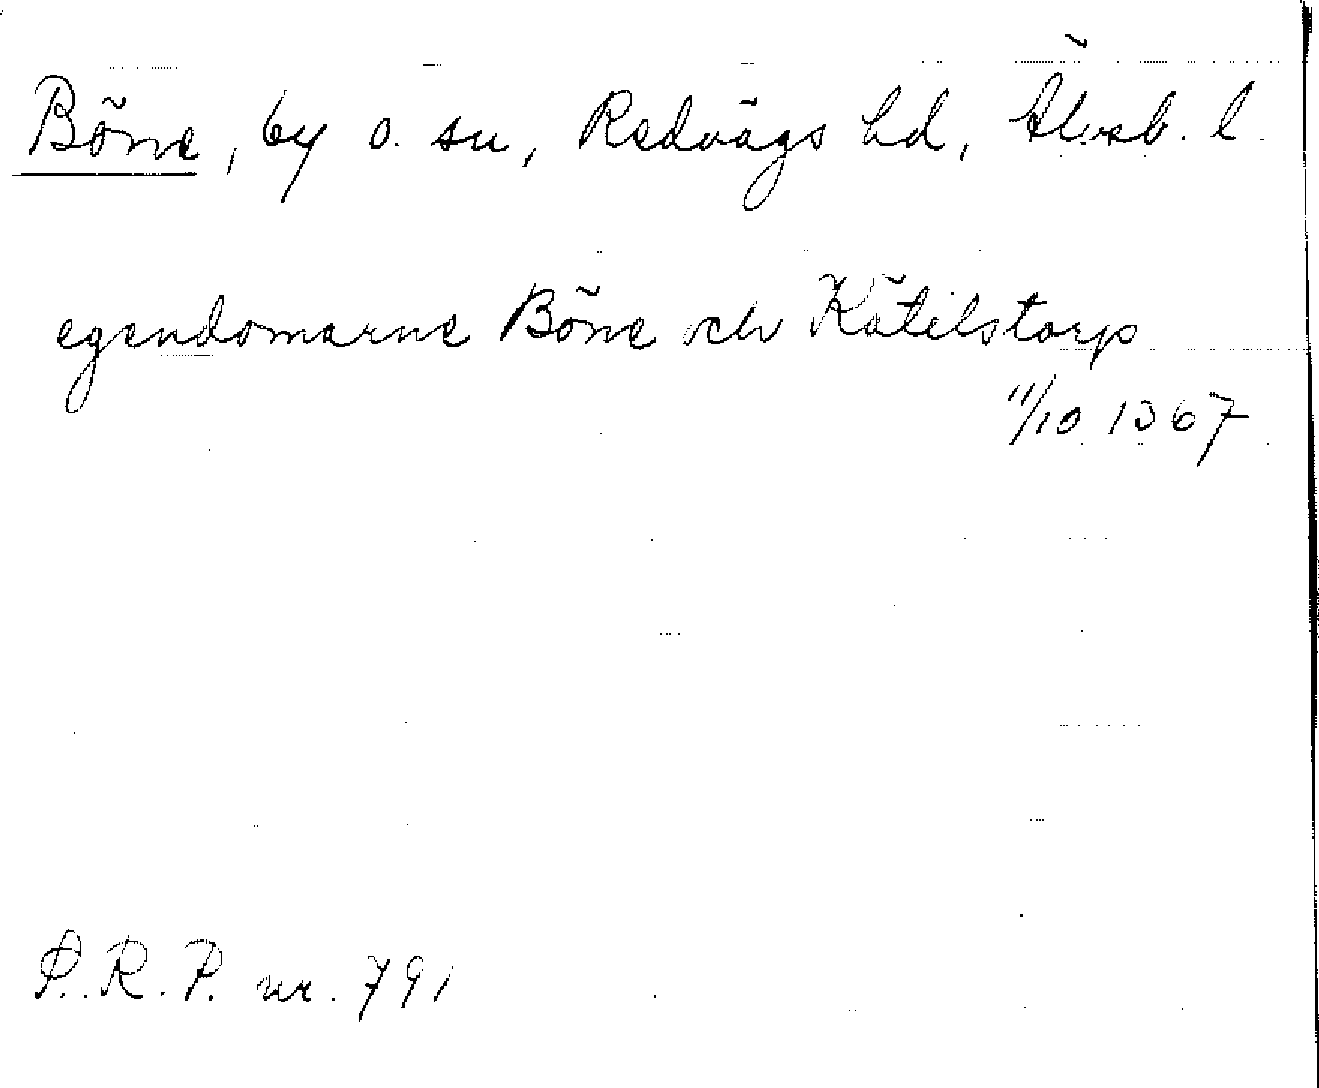 Böne, by o. sn, Redvägs hd, Älvsb. l.
egendomarne Böne och Kätilstorp
11/10 1367
P. R. P. nr. 791